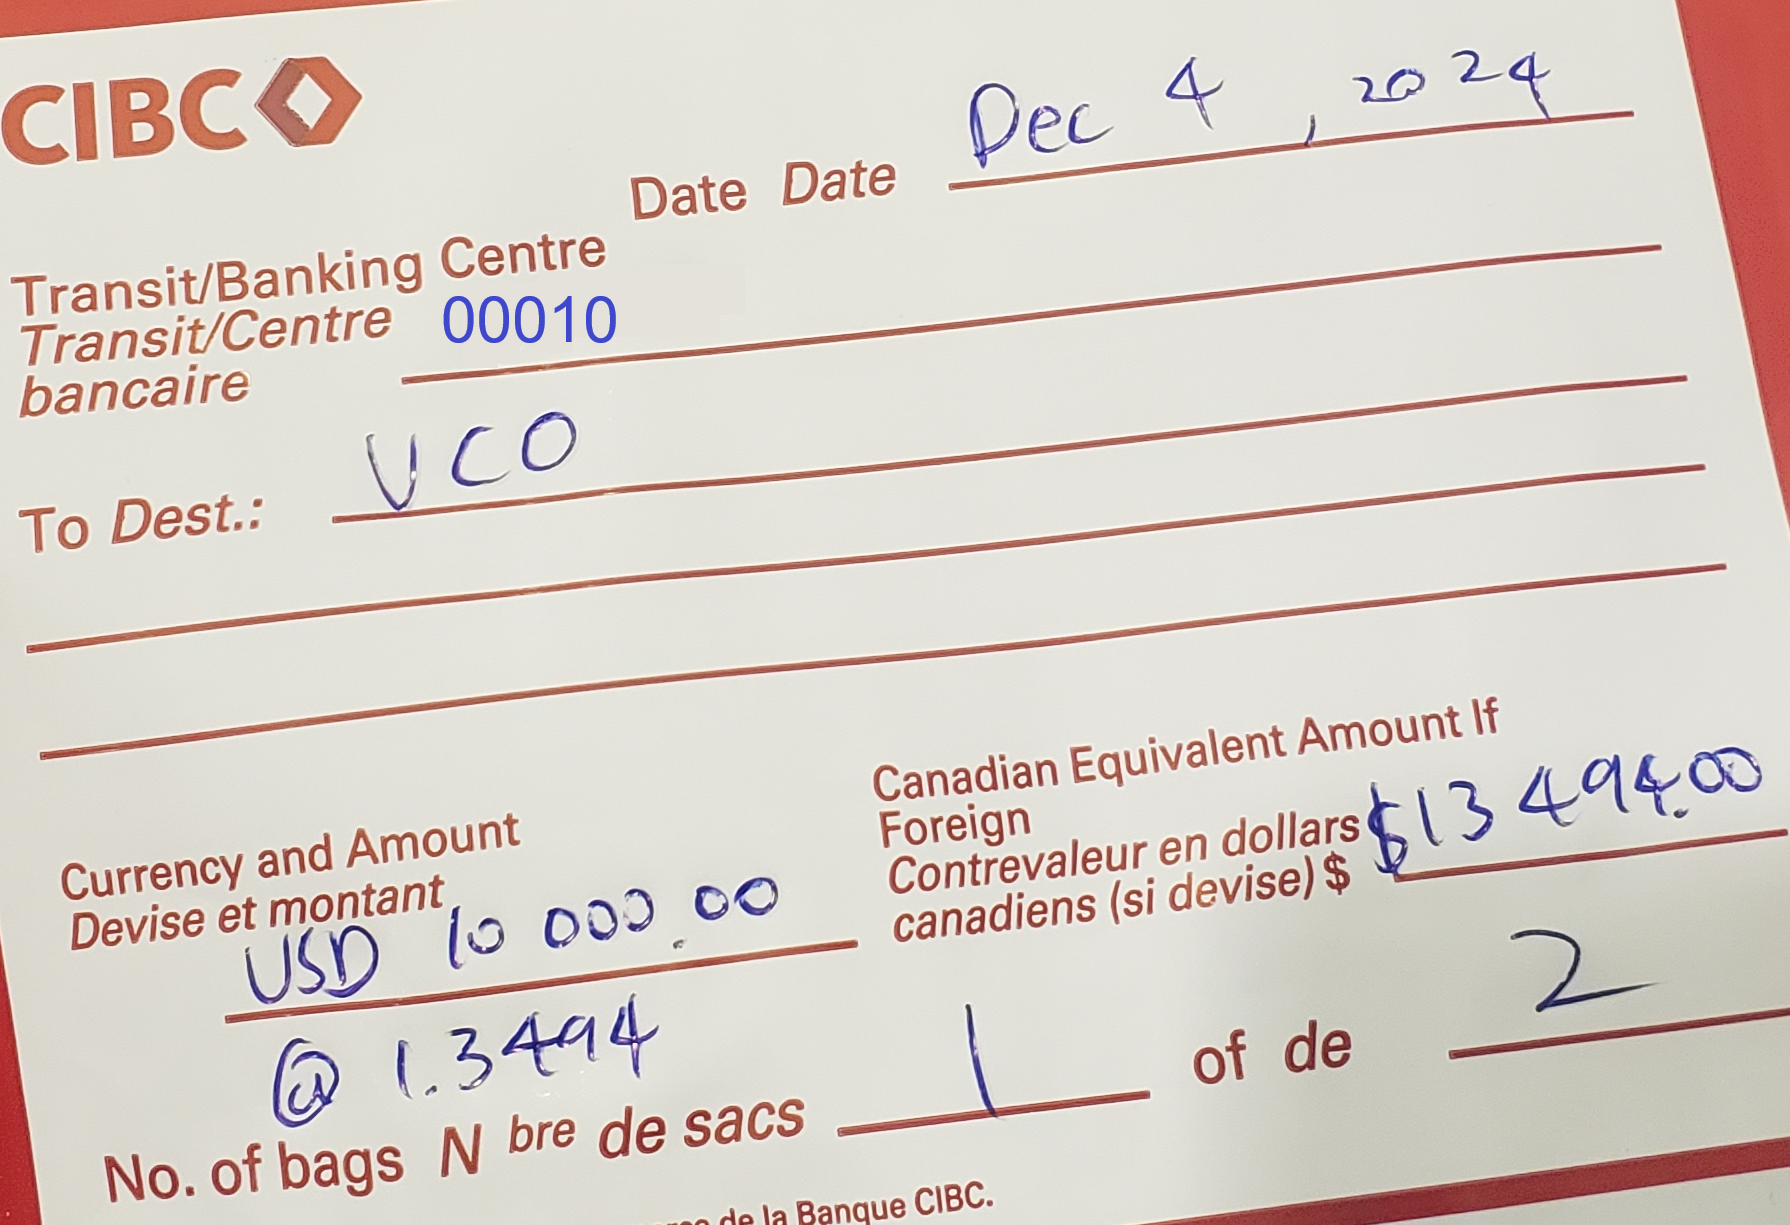 CIBC
Date Date Dec 4, 2024
Transit/Banking Centre
Transit/Centre 00010
bancaire
To Dest.: VCO
Currency and Amount
Devise et montant
USD 10 000.00
@ 1.3494
Canadian Equivalent Amount If
Foreign
Contrevaleur en dollars
canadiens (si devise) $ $13 494.00
No. of bags N bre de sacs 1 of de 2
de la Banque CIBC.